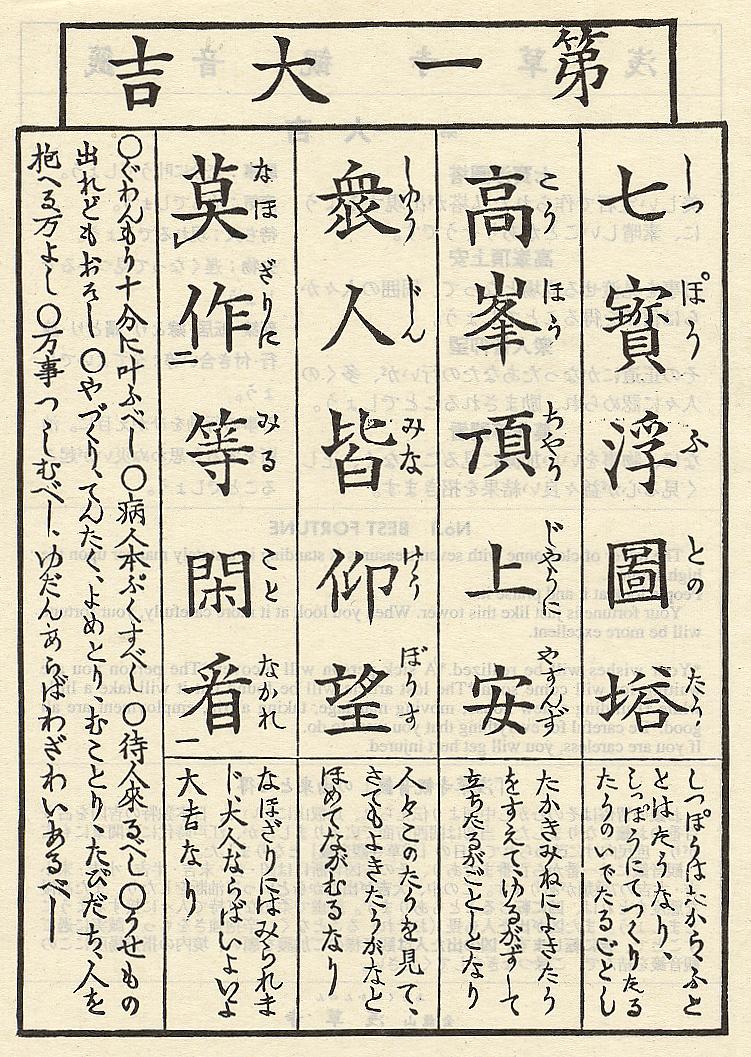 第一大吉
七寶浮圖塔
しつぽうふとのたう
しつぽうはたからふと
とはたうなり、
しつぽうにてつくりたる
たうのいでたるごとし
高峯頂上安
こうほうちやうじやうにやすんず
たかきみねによきたう
をすえてゆるがずして
立ちたるがごとしとなり
衆人皆仰望
しゆうじんみなげうぼうす
人々とのたうを見て、
さてもよきたうかなと
ほめてながむるなり
莫レ作二等閑看一
なほざりにみることなかれ
なほざりにはみられま
じ、大人ならばいよいよ
大吉なり
〇ぐわんもう十分に叶ふべし〇病人本ぷくすべし〇待人來るべし〇うせもの
出れどもおそし〇やづくりてんたく、よめとりむことりたびだち、人を
抱へる万よし〇万事つゝしむべし、ゆだんあらばわざわいあるべし